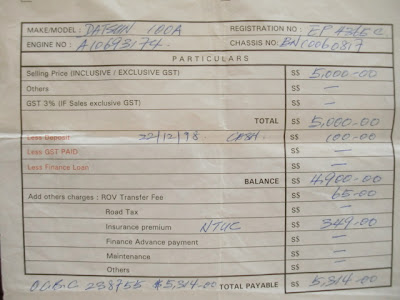 MAKE/MODEL: DATSUN 100A REGISTRATION NO:
ENGINE NO: A10693174. CHASSIS NO:
PARTICULARS
Selling Price (INCLUSIVE / EXCLUSIVE GST) S$ 5,000-00
Others S$ —
GST 3% (IF Sales exclusive GST) S$ —
TOTAL S$ 5,000-00
Less Deposit 22/12/98 CASH. S$ 100-00
Less GST PAID S$ —
Less Finance Loan S$ —
BALANCE S$ 4,900-00
Add others charges : ROV Transfer Fee S$ 65-00
Road Tax S$ —
Insurance premium NTUC S$ 349-00
Finance Advance payment S$ —
Maintenance S$ —
Others S$ —
O.C.B.C. 238755 $5,314-00 TOTAL PAYABLE S$ 5,314-00